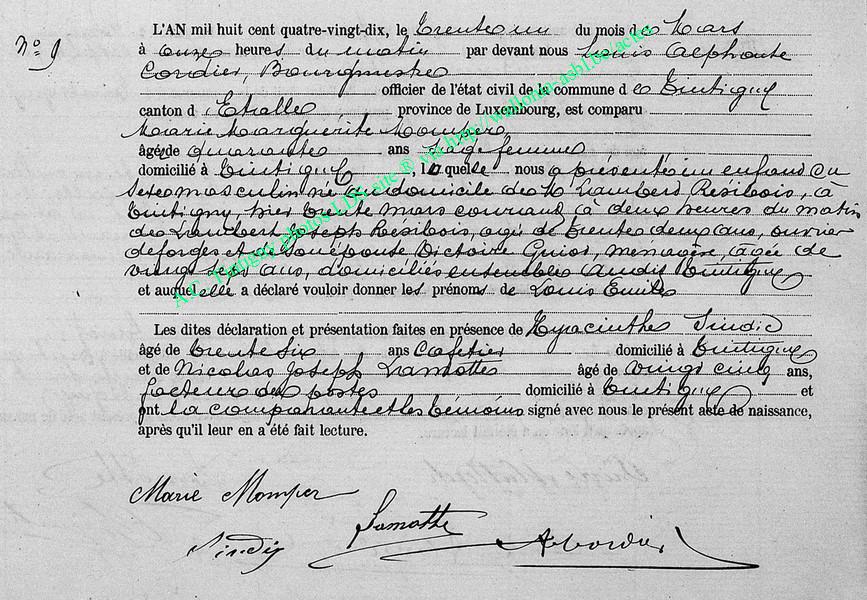 N° 9
L'AN mil huit cent quatre-vingt-dix, le trente un du mois de Mars
à onze heures du matin par devant nous Louis Alphonse
Cordier, Bourgmestre
officier de l'état civil de la commune de Tintigny
canton d'Etalle province de Luxembourg, est comparu
Marie Marguerite Momper
âgée de quarante ans sage femme
domicilié à Tintigny, laquelle nous a présenté un enfant du
sexe masculin né au domicile de Mr Lambert Resibois, à
Tintigny, hier trente Mars courant, à deux heures du matin
de Lambert Joseph Resibois, agé de trente deux ans, ouvrier
de forges et de son épouse Victoire Guiot, ménagère, agée de
vingt sept ans, domiciliés ensembles audit Tintigny
et auquel elle a déclaré vouloir donner les prénoms de Louis Emile
Les dites déclaration et présentation faites en présence de Hyacinthe Sindic
âgé de trente six ans Cafetier domicilié à Tintigny
et de Nicolas Joseph Lamotte âgé de vingt cinq ans,
facteur des postes domicilié à Tintigny et
ont la comparante et les témoins signé avec nous le présent acte de naissance,
après qu'il leur en a été fait lecture.
Marie Momper
Sindic Lamotte A Cordier
A.C. Tintigny photos LDS site ® via http://wallonia-asbl.be/actes